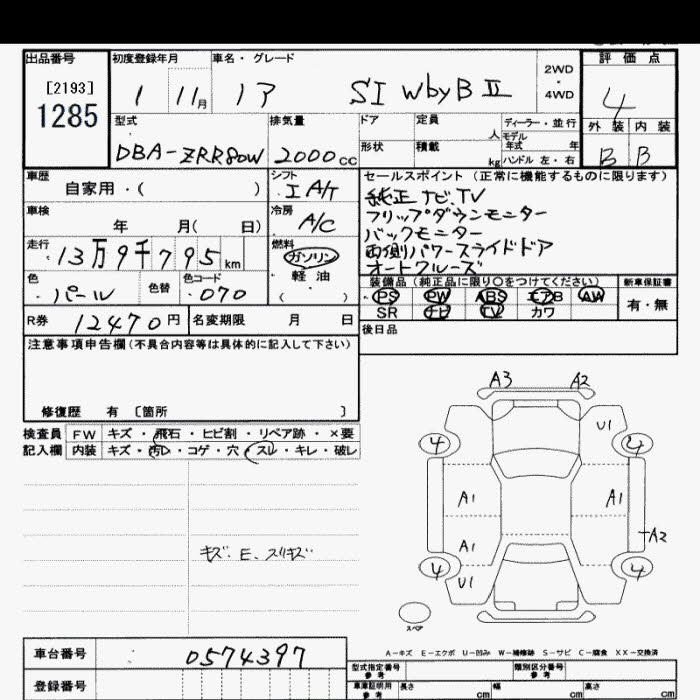 出品番号 初度登録年月 車名・グレード 2WD・4WD 評価点
[2193]
1285
1 11月 ヴォ SI WbyBⅡ 4
型式 排気量 ドア 定員 人 ディーラー・並行 外装 内装
モデル年式 年
DBA-ZRR80W 2000cc 形状 積載 kg ハンドル 左・右 B B
車歴 シフト セールスポイント(正常に機能するものに限ります)
自家用・( ) I A/T
純正 ナビ.TV
フリップダウンモニター
バックモニター
両側パワースライドドア
オートクルーズ
車検 冷房
年 月( 日) A/C
走行 燃料
13万9千795km ガソリン
軽油
( )
色 色替 色コード
パール 070
装備品(純正品に限り○をつけてください) 新車保証書
PS PW ABS エアB AW 有・無
SR ナビ TV カワ
R券 12470円 名変期限 月 日
後日品
注意事項申告欄(不具合内容等は具体的に記入して下さい)
修復歴 有 [箇所 ]
検査員 FW キズ・飛石・ヒビ割・リペア跡・×要
記入欄 内装 キズ・汚レ・コゲ・穴・スレ・キレ・破レ
キズ. E. スリキズ
A3 A2
U1
4 4
A1 A1
A2
A1
4 4
U1
スペア
A-キズ E-エクボ U-凹み W-補修跡 S-サビ C-腐食 XX-交換済
車台番号 0574397
型式指定番号 参考 類別区分番号 参考
登録番号
車庫証明用 参考 長さ cm 幅 cm 高さ cm